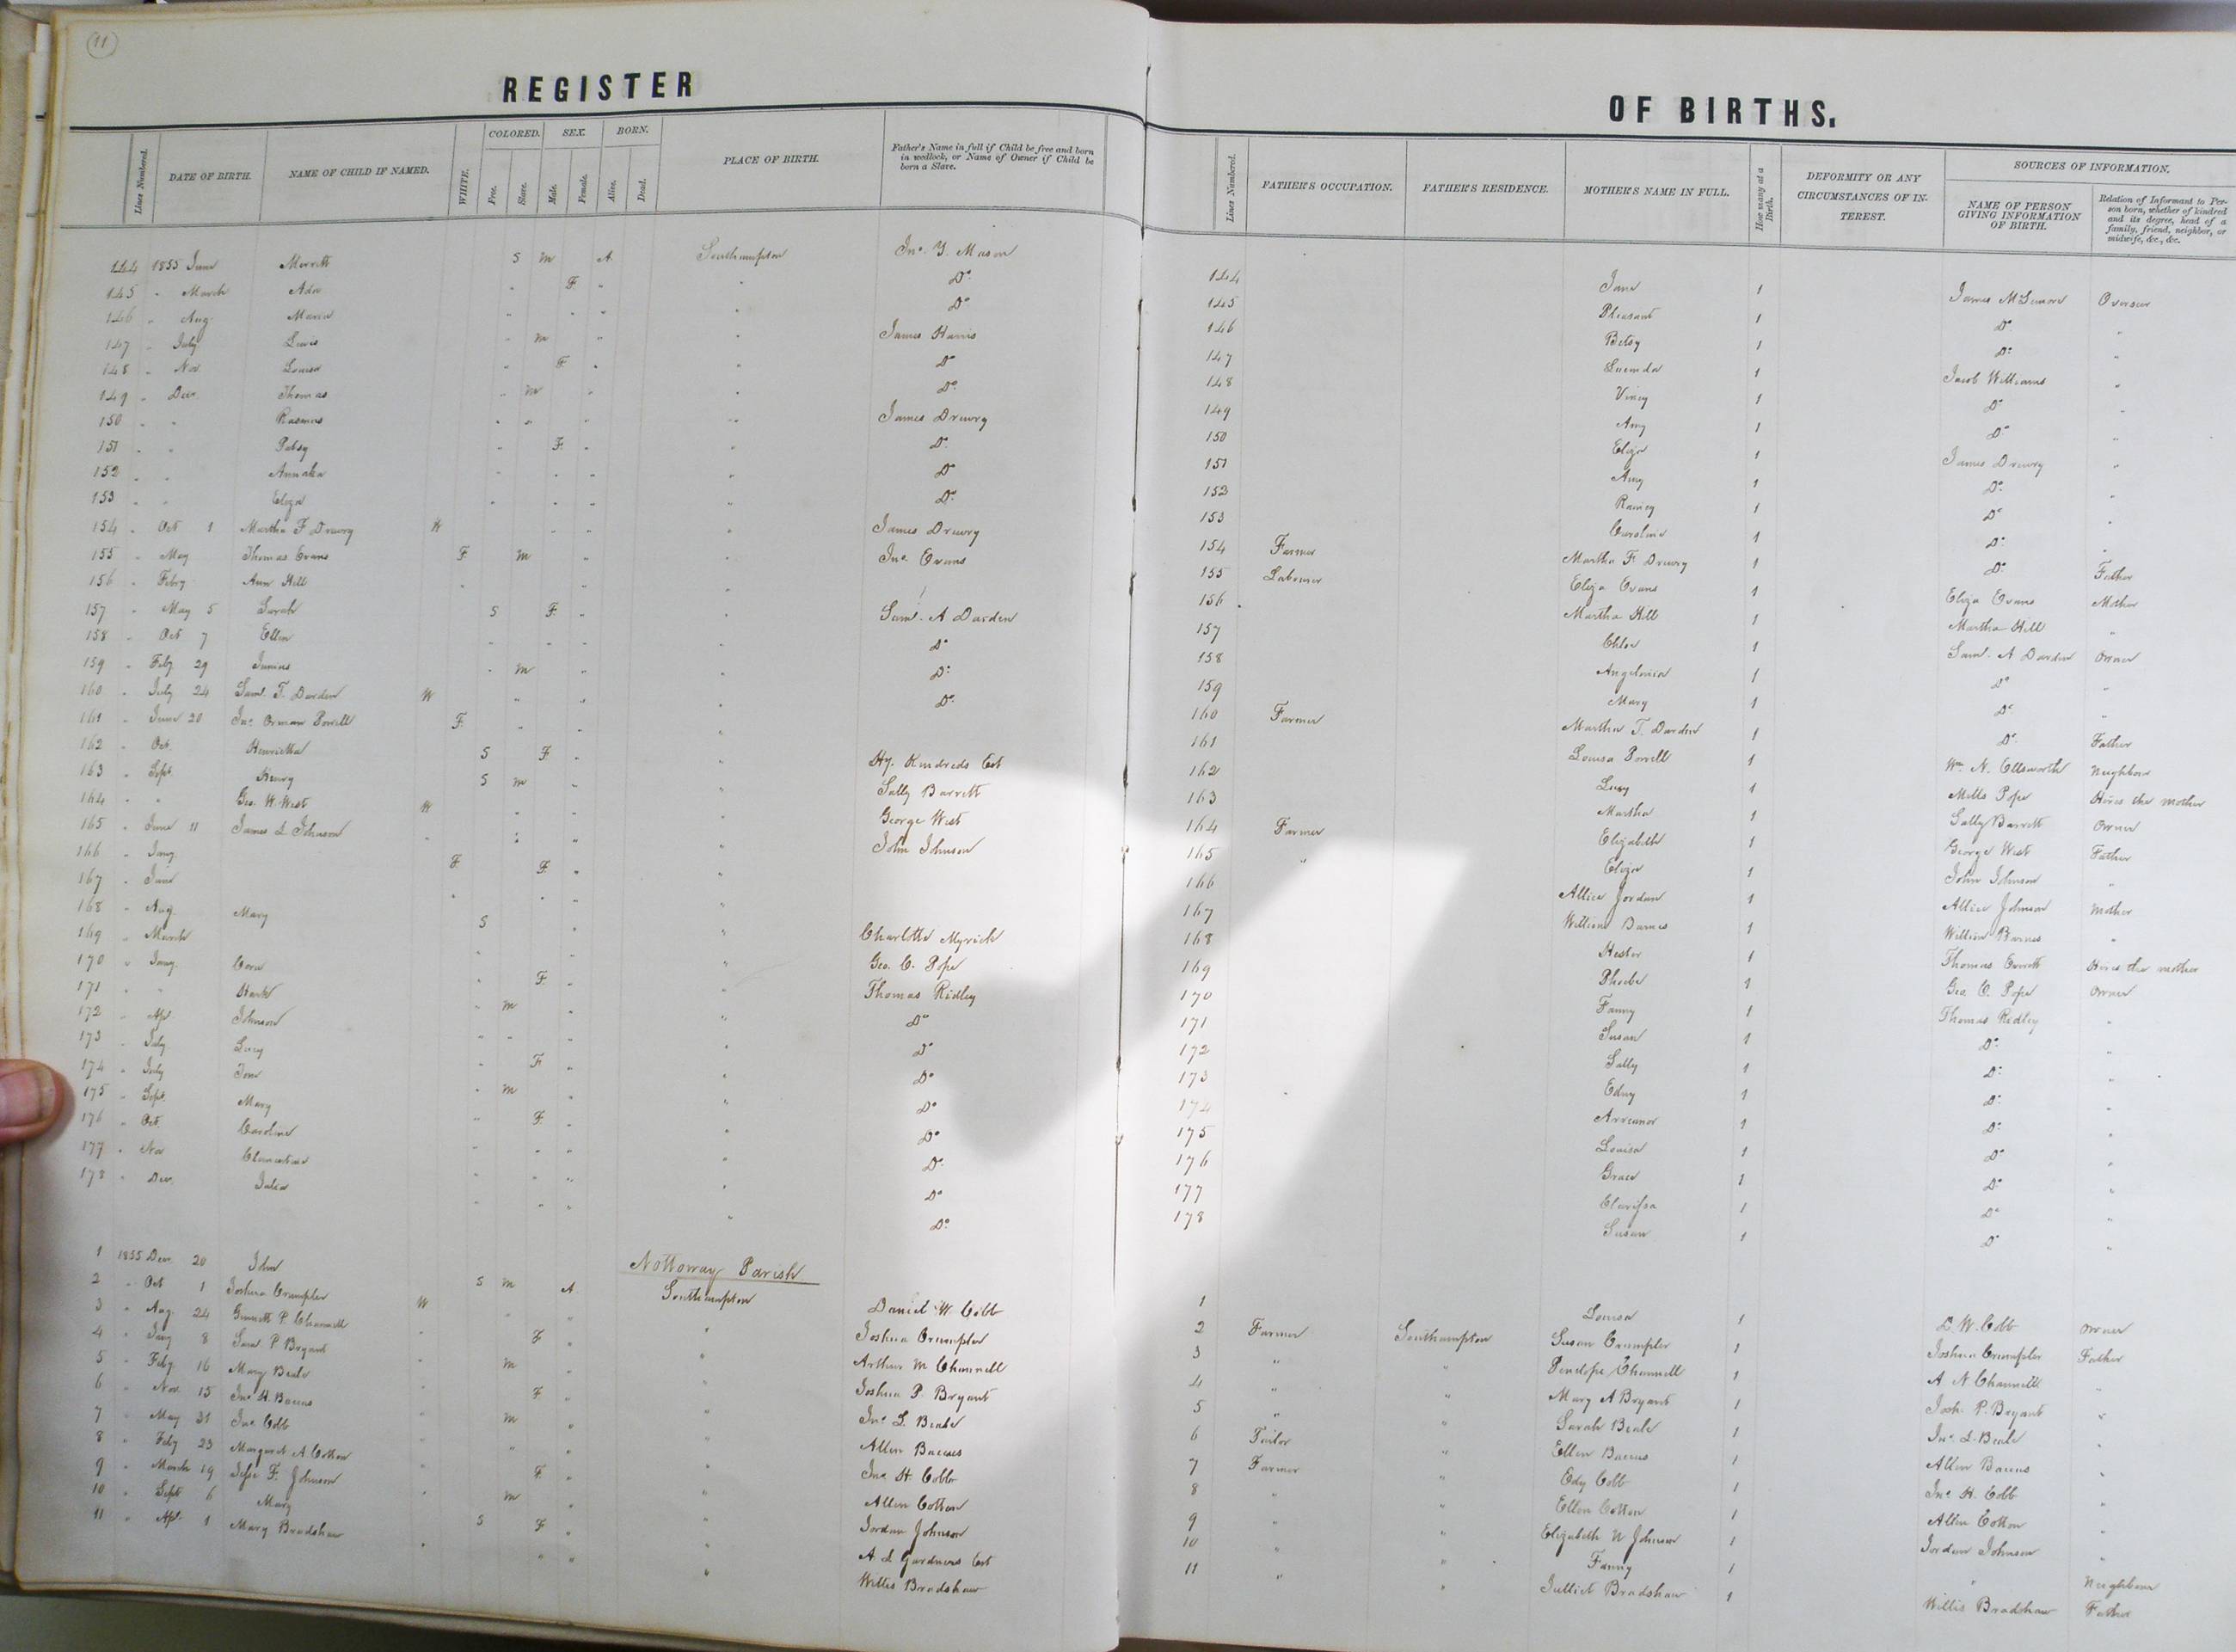 11
REGISTER
OF BIRTHS.
Lines Numbered.
DATE OF BIRTH.
NAME OF CHILD IF NAMED.
WHITE.
COLORED.
Free.
Slave.
SEX.
Male.
Female.
BORN.
Alive.
Dead.
PLACE OF BIRTH.
Father's Name in full if Child be free and born
in wedlock, or Name of Owner if Child be
born a Slave.
Lines Numbered.
FATHER'S OCCUPATION.
FATHER'S RESIDENCE.
MOTHER'S NAME IN FULL.
How many at a Birth.
DEFORMITY OR ANY
CIRCUMSTANCES OF IN-
TEREST.
SOURCES OF INFORMATION.
NAME OF PERSON
GIVING INFORMATION
OF BIRTH.
Relation of Informant to Per-
son born, whether of kindred
and its degree, head of a
family, friend, neighbor, or
midwife, &c., &c.
144 1855 June Merritt S M A Southampton Jno. Y. Mason 144 Jane 1 James Overseer
145 " March Ada " F " " Do. 145 Pleasant 1 Do. "
146 " Aug Maria " " " " Do. 146 Betsy 1 Do. "
147 " July Lewis " M " " James Harris 147 Lucinda 1 Jacob Williams "
148 " Nov. Louisa " F " " Do. 148 Viney 1 Do. "
149 " Dec. Thomas " M " " Do. 149 Amy 1 Do. "
150 " " Rasmus " " " " James Drewry 150 Eliza 1 James Drewry "
151 " " Patsy " F " " Do. 151 Amy 1 Do. "
152 " " " " " " Do. 152 1 Do. "
153 " " Eliza " " " " Do. 153 Caroline 1 Do. "
154 " Oct 1 Martha F Drewry W " " " James Drewry 154 Farmer Martha F Drewry 1 Do. Father
155 " May Thomas Evans F M " " Jno. Evans 155 Labourer Eliza Evans 1 Eliza Evans Mother
156 " Feby Ann Hill " " 156 Martha Hill 1 Martha Hill "
157 " May 5 Sarah S F " " Saml. A Darden 157 Chloe 1 Saml. A Darden Owner
158 " Oct 7 Ellen " " " " Do. 158 1 Do. "
159 " Feby 29 Junius " M " " Do. 159 Mary 1 Do. "
160 " July 24 Saml. T. Darden W " " " Do. 160 Farmer Martha T. Darden 1 Do. Father
161 " June 20 Jno. Powell F " " 161 Louisa Powell 1 Wm. N. Ellsworth Neighbour
162 " Oct. Henrietta S F " " Hy. Kindreds Est 162 Lucy 1 Mills Pope Hires the mother
163 " Sept. Henry S M " " Sally Barrett 163 Martha 1 Sally Barrett Owner
164 " " Geo. W. West W " " " George West 164 Farmer Elizabeth 1 George West Father
165 " June 11 James L Johnson " " " " John Johnson 165 " Eliza 1 John Johnson "
166 " Jany. F F " " 166 Jordan 1 Johnson Mother
167 " June " " " " 167 Barnes 1 Barnes "
168 " Aug. Mary S " " Charlotte Myrick 168 Hester 1 Thomas Hires the mother
169 " March " " " Geo. C. Pope 169 Phoebe 1 Geo. C. Pope Owner
170 " Jany. Cora " F " " Thomas Ridley 170 Fanny 1 Thomas Ridley "
171 " " " M " " Do. 171 Susan 1 Do. "
172 " Ap. Johnson " " " " Do. 172 Sally 1 Do. "
173 " July Lucy " F " " Do. 173 Edny 1 Do. "
174 " July Tom " M " " Do. 174 1 Do. "
175 " Sept. Mary " F " " Do. 175 Louisa 1 Do. "
176 " Oct. Caroline " " " " Do. 176 Grace 1 Do. "
177 " Nov Clementine " " " " Do. 177 Clarissa 1 Do. "
178 " Dec. Julia " " " " Do. 178 Susan 1 Do. "
Nottoway Parish
1 1855 Dec. 20 John S M A Southampton Daniel W. Cobb 1 Louisa 1 D. W. Cobb Owner
2 " Oct 1 Joshua Crumpler W " " " Joshua Crumpler 2 Farmer Southampton Susan Crumpler 1 Joshua Crumpler Father
3 " Aug. 24 " F " " Arthur M 3 " " Penelope 1 A "
4 " Jany 8 P Bryant " M " " Joshua P. Bryant 4 " " Mary A Bryant 1 Josh. P. Bryant "
5 " Feby 16 Mary Beale " F " " Jno. L. Beale 5 " " Sarah Beale 1 Jno. L. Beale "
6 " Nov. 15 Jno. H. " M " " Allen 6 Tailor " Ellen 1 Allen "
7 " May 31 Jno. Cobb " " " " Jno. H. Cobb 7 Farmer " Edy Cobb 1 Jno. H. Cobb "
8 " Feby 23 Margaret A Cotton " F " " Allen Cotton 8 " " Ellen Cotton 1 Allen Cotton "
9 " March 19 Jesse F. Johnson " M " " Jordan Johnson 9 " " Elizabeth Johnson 1 Jordan Johnson "
10 " Sept 6 Mary S F " " A L Gardners Est 10 " " Fanny 1 " Neighbour
11 " Ap. 1 Mary Bradshaw " " " " Willis Bradshaw 11 " " Bradshaw 1 Willis Bradshaw Father